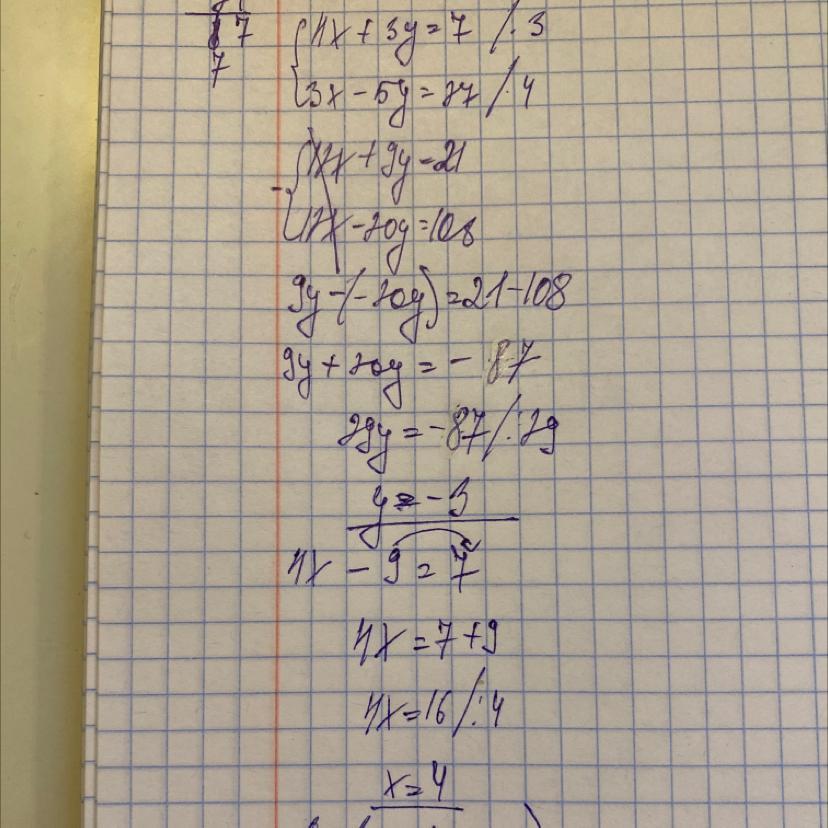 17
7
4x + 3y = 7 /· 3
3x - 5y = 27 /· 4
12x + 9y = 21
12x - 20y = 108
9y - (-20y) = 21 - 108
9y + 20y = - 87
29y = -87 /: 29
y = -3
4x - 9 = 7
4x = 7 + 9
4x = 16 /: 4
x = 4